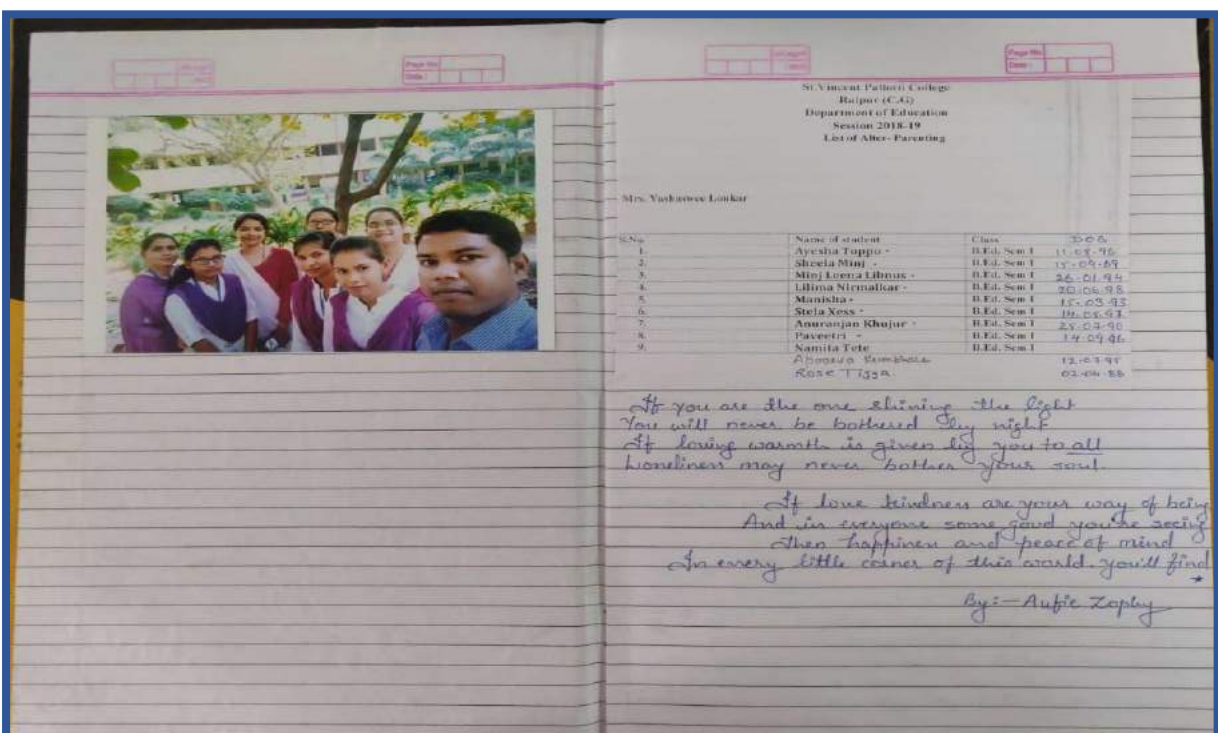 Page No.
Date :
Page No.
Date :
St.Vincent Pallotti College
Raipur (C.G)
Department of Education
Session 2018-19
List of Alter- Parenting
Mrs. Yashaswee Lonkar
S.No. Name of student Class DOB
1. Ayesha Toppo - B.Ed. Sem I 11-08-96
2. Sheela Minj - B.Ed. Sem I 15-09-89
3. Minj Leena Libnus - B.Ed. Sem I 26-01-94
4. Lilima Nirmalkar - B.Ed. Sem I 20-06-98
5. Manisha - B.Ed. Sem I 15-03-93
6. Stela Xess - B.Ed. Sem I
7. Anuranjan Khujur - B.Ed. Sem I 28-07-90
8. Paveetri - B.Ed. Sem I 14-09-96
9. Namita Tete B.Ed. Sem I
Apoorva 12-03-95
Rose Tigga. 02-04-88
If you are the one shining the light
You will never be bothered by night
If loving warmth is given by you to all
Loneliness may never bother your soul.
If love kindness are your way of being
And in everyone some good you're seeing
then happiness and peace of mind
In every little corner of this world you'll find
By:- Aufie Zophy